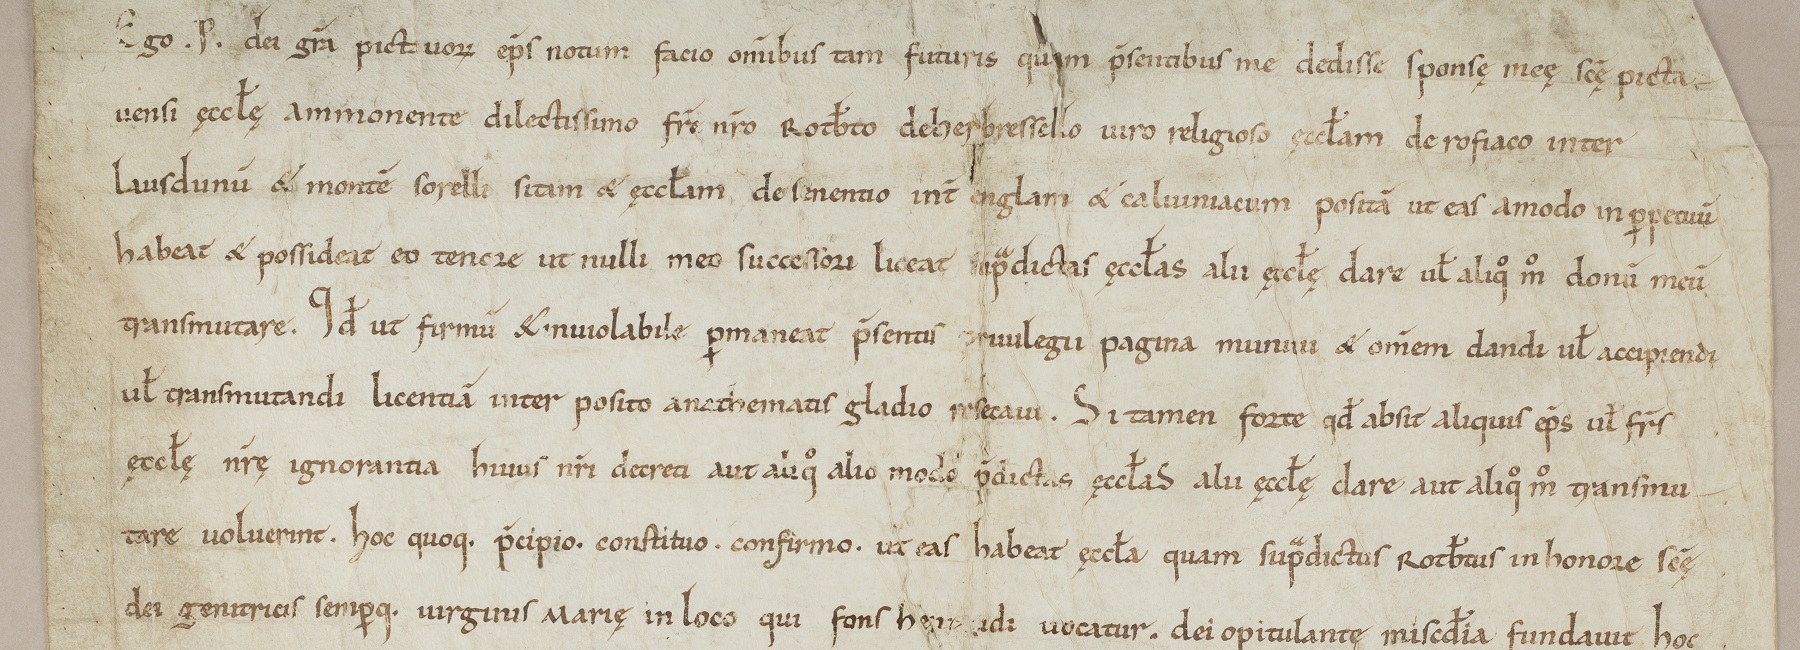 Ego .P. dei gr̄a pictavoꝝ ep̄s notum facio om̄ibus tam futuris quam p̄sentibus me dedisse sponsę meę sc̄ę picta-
uensi ęccł̄ę ammonente dilectissimo fr̄e nr̄o Rotb̄to deherbressello uiro religioso ęccł̄am de rosiaco inter
lausdunū & montē sorelli sitam & ęccł̄am de sinentio int̄ englam & caluiniacum positā ut eas amodo in ꝑpetuū
habeat & possideat eo tenore ut nulli meo successori liceat sup̄dictas ęccł̄as alii ęccł̄ę dare ul̄ aliqͦ mͦ donū meū
transmutare. Qd̄ ut firmū & inuiolabile ꝑmaneat p̄sentis priuilegii pagina muniui & om̄em dandi ul̄ accipiendi
ul̄ transmutandi licentiā inter posito anathematis gladio resecaui. Si tamen forte qd̄ absit aliquis ep̄s ul̄ fr̄s
ęccł̄ę nr̄ę ignorantia huius nr̄i decreti aut aliqͦ alio modo p̄dictas ęccł̄as alii ęccł̄ę dare aut aliqͦ mͦ transmu-
tare uoluerint. hoc quoq. p̄cipio. constituo. confirmo. ut eas habeat ęccł̄a quam sup̄dictus Rotb̄tus in honore sc̄ę
dei genitricis semꝑq. uirginis Marię in loco qui fons ebraudi uocatur. dei opitulantę misc̄dia fundauit hoc